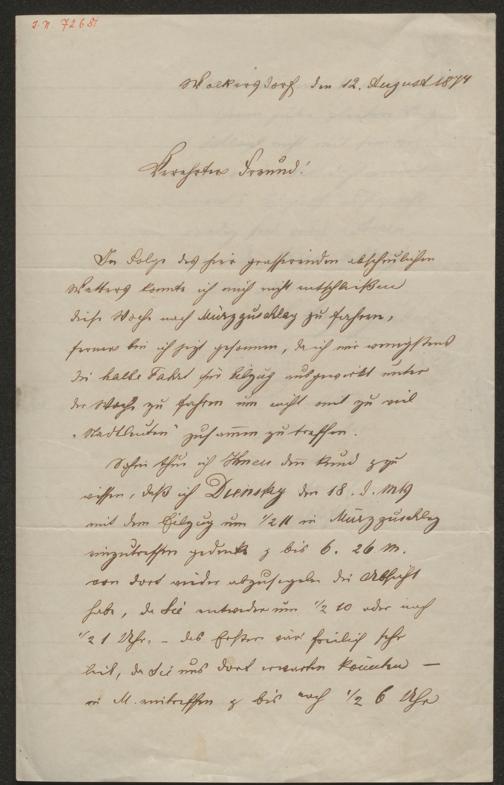 I.N. 72681
Wolkersdorf den 12. August 1874
Verehrter Freund!
In Folge des hier grassirenden abscheulichen
Wetters konnte ich mich nicht entschließen
diese Woche nach Mürzzuschlag zu fahren,
ferner bin ich jetzt gesonnen, da ich mir wenigstens
die halbe Fahrt für Eilzug ausgewirkt unter
der Woche zu fahren um nicht mit zu viel
"Stadtleuten" zusammen zu treffen.
thue ich Ihnen den kund zu
wissen, daß ich Dienstag den 18. d. Mts
mit dem Eilzug um 1/2 11 in Mürzzuschlag
einzutreffen gedenke & bis 6. 26 M.
von dort wieder abzusegeln die Absicht
habe, da Sie entweder um 1/2 10 oder nach
1/2 1 Uhr. – das Erstere wär freilich sehr
lieb, da Sie uns dort erwarten könnten –
in M. eintreffen & bis nach 1/2 6 Uhr